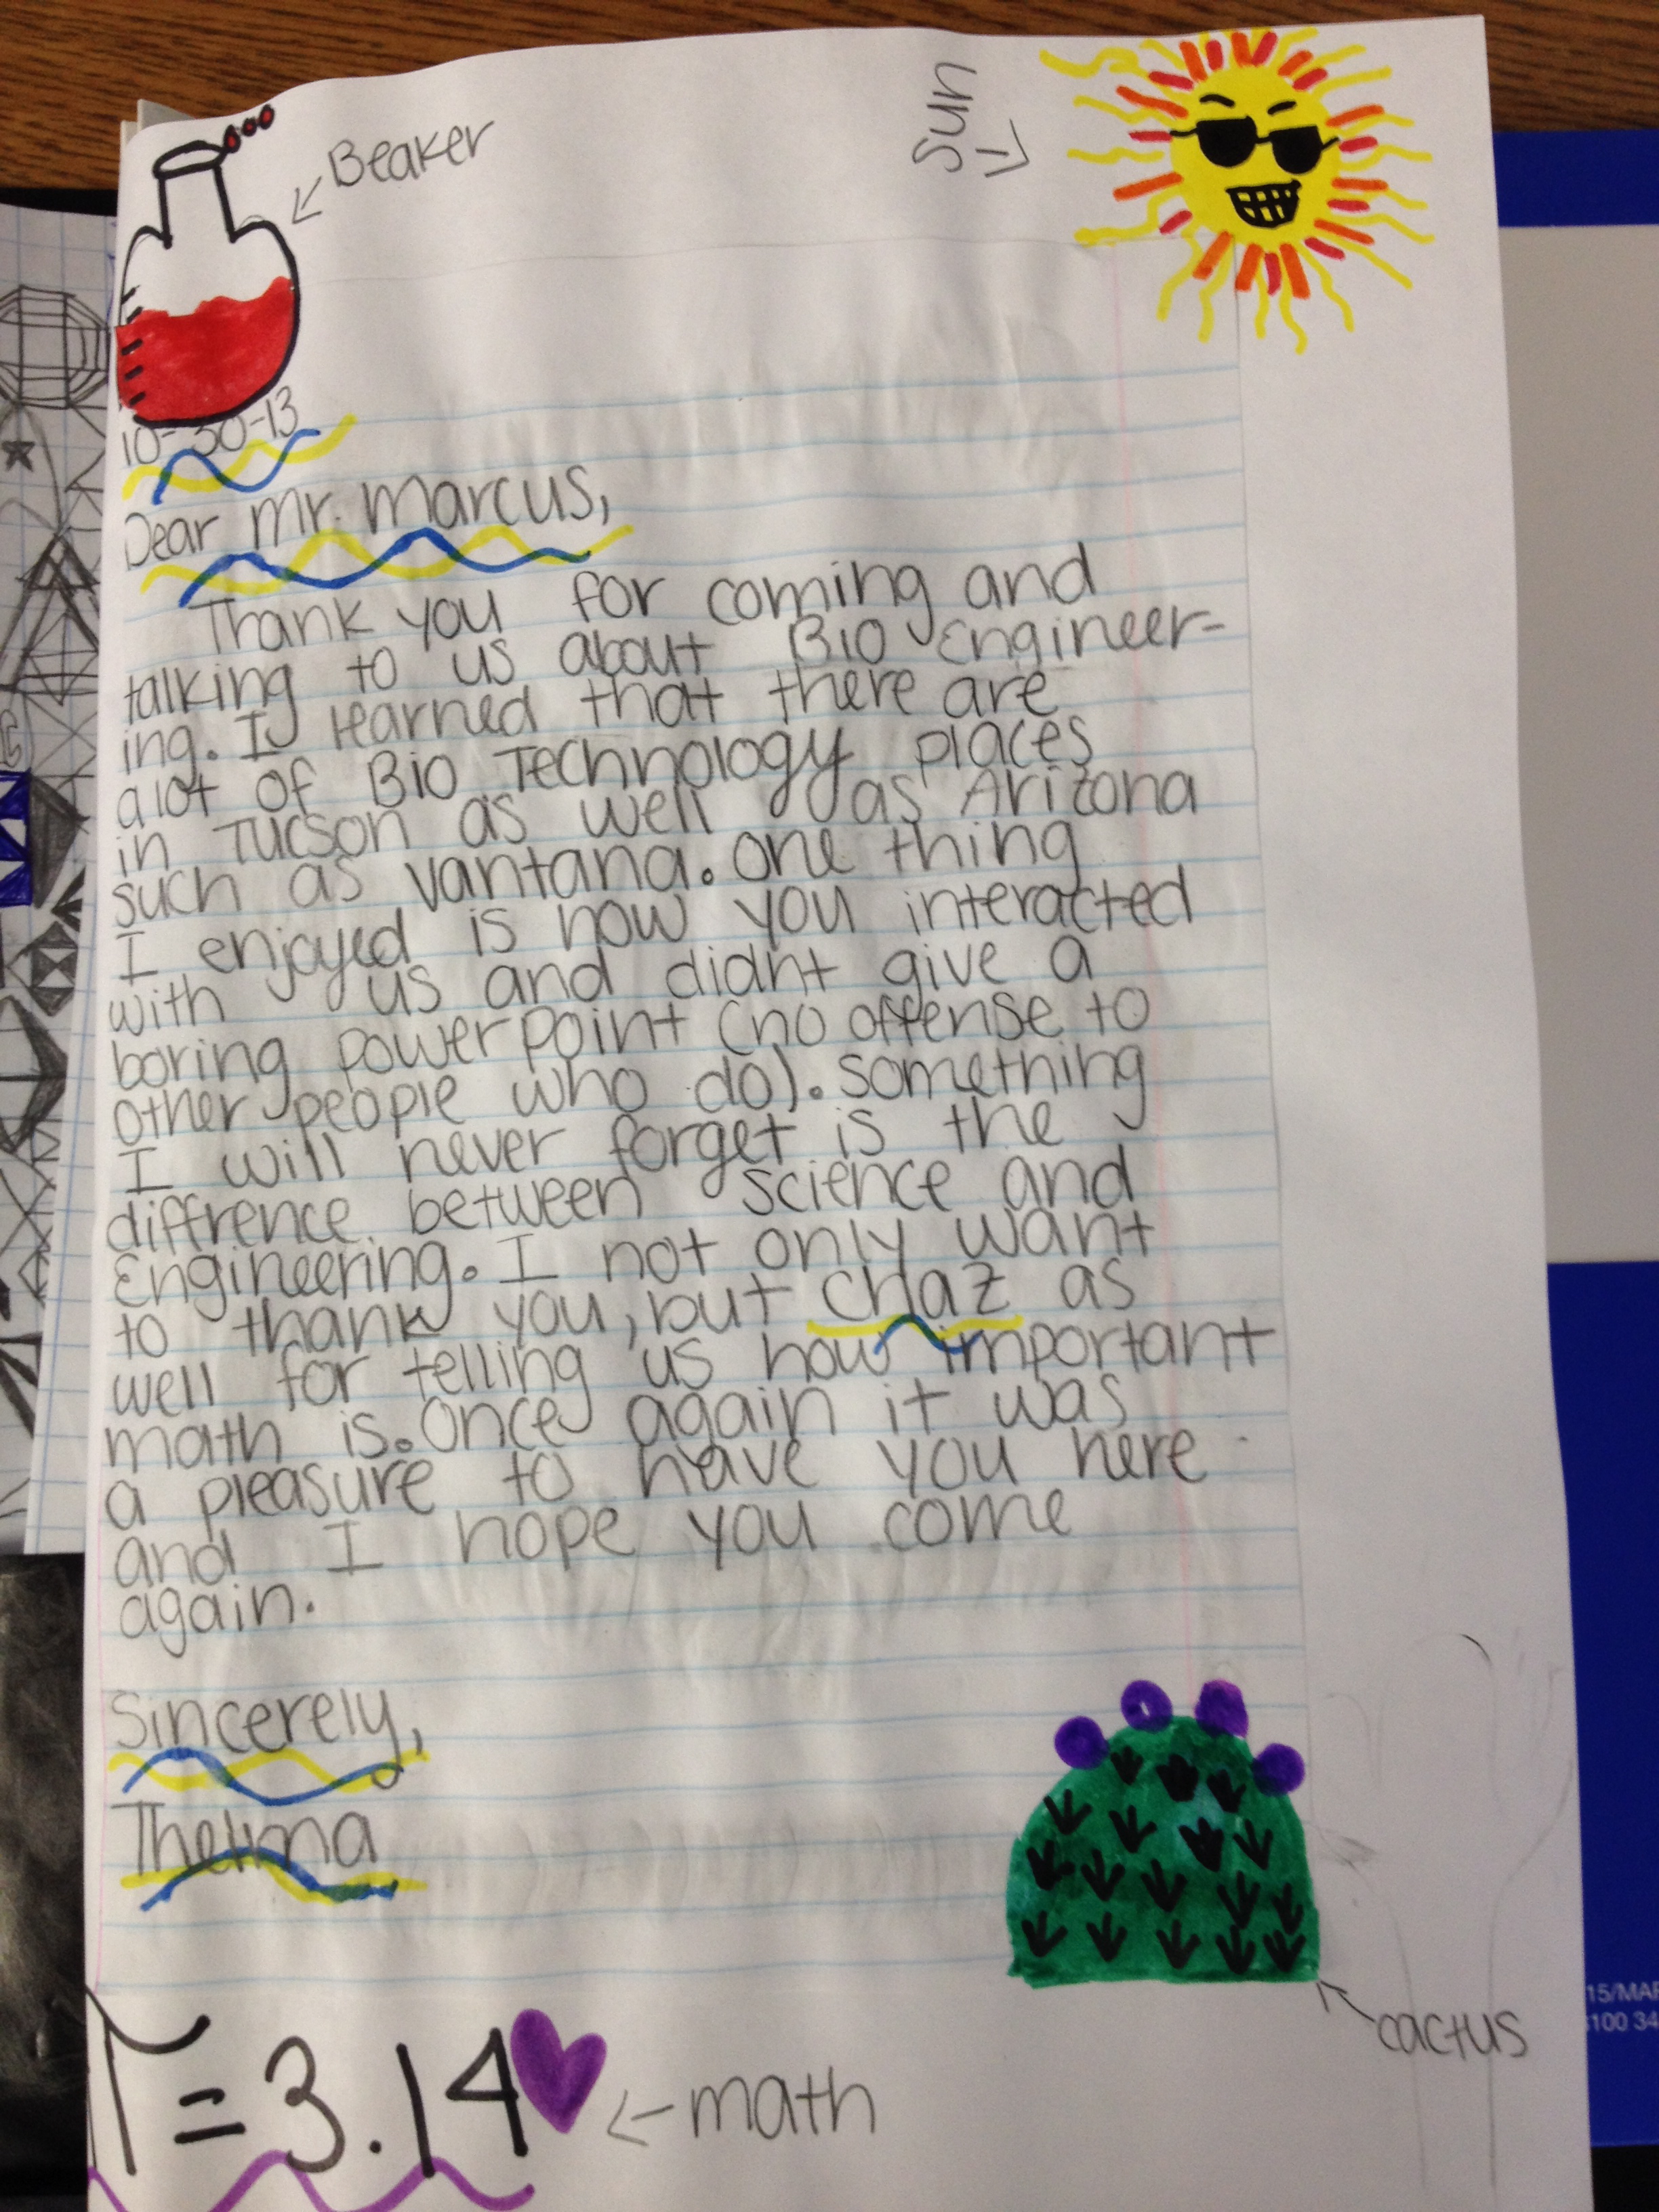 Beaker
Sun
10-30-13
Dear Mr. Marcus,
Thank you for coming and
talking to us about Bio Engineer-
ing. I learned that there are
alot of Bio Technology places
in Tucson as well as Arizona
such as Vantana. One thing
I enjoyed is how you interacted
with us and didnt give a
boring powerpoint (no offense to
other people who do). Something
I will never forget is the
diffrence between science and
Engineering. I not only want
to thank you, but Chaz as
well for telling us how important
math is. Once again it was
a pleasure to have you here
and I hope you come
again.
Sincerely,
Thelma
cactus
π=3.14
math
15/MAR
100 34